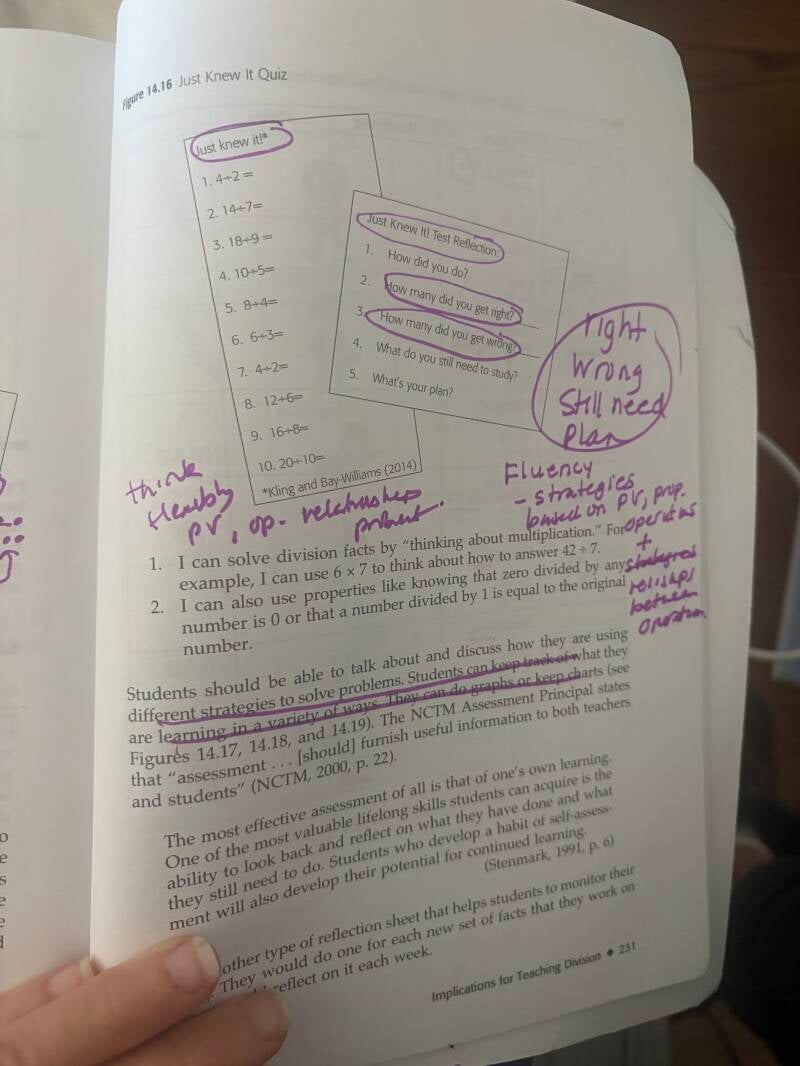 Figure 14.16 Just Knew It Quiz
Just knew it!*
1. 4÷2=
2. 14÷7=
3. 18÷9=
4. 10÷5=
5. 8÷4=
6. 6÷3=
7. 4÷2=
8. 12÷6=
9. 16÷8=
10. 20÷10=
*Kling and Bay-Williams (2014)
Just Knew It! Test Reflection:
1. How did you do?
2. How many did you get right?
3. How many did you get wrong?
4. What do you still need to study?
5. What's your plan?
right
Wrong
Still need
Plan
think
flexibly
pv, op. relationships
Fluency
- strategies
based on PV, prop.
operations
+
strategies
between
1. I can solve division facts by "thinking about multiplication." For
example, I can use 6 × 7 to think about how to answer 42 ÷ 7.
2. I can also use properties like knowing that zero divided by any
number is 0 or that a number divided by 1 is equal to the original
number.
Students should be able to talk about and discuss how they are using
different strategies to solve problems. Students can keep track of what they
are learning in a variety of ways. They can do graphs or keep charts (see
Figures 14.17, 14.18, and 14.19). The NCTM Assessment Principal states
that "assessment . . . [should] furnish useful information to both teachers
and students" (NCTM, 2000, p. 22).
The most effective assessment of all is that of one's own learning.
One of the most valuable lifelong skills students can acquire is the
ability to look back and reflect on what they have done and what
they still need to do. Students who develop a habit of self-assess-
ment will also develop their potential for continued learning.
(Stenmark, 1991, p. 6)
other type of reflection sheet that helps students to monitor their
They would do one for each new set of facts that they work on
reflect on it each week.
Implications for Teaching Division ◆ 231